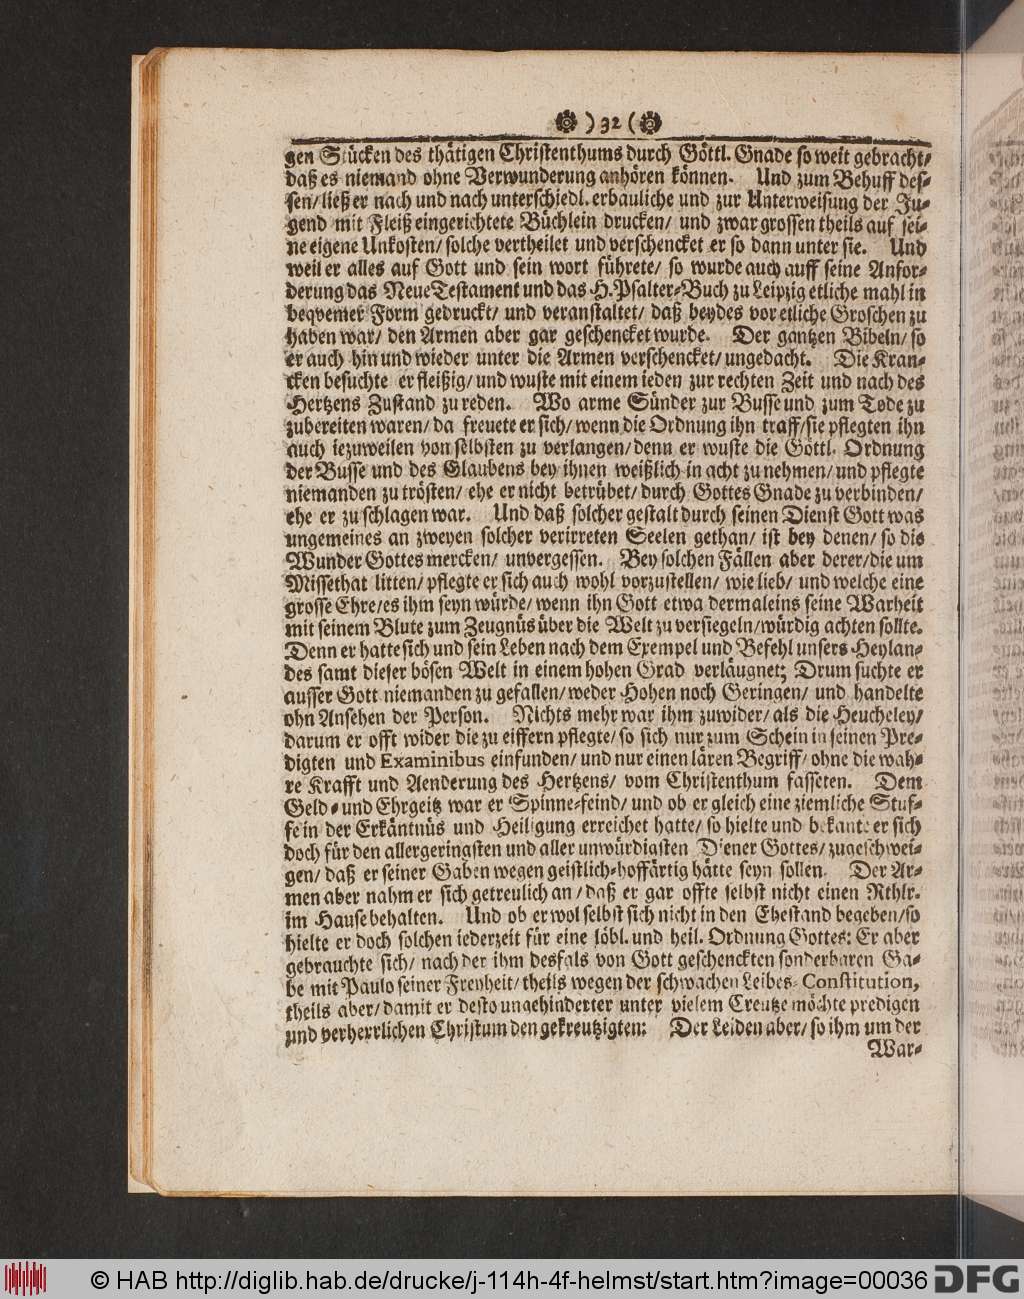 ) 32 (
gen Stücken des thätigen Christenthums durch Göttl. Gnade so weit gebracht/
daß es niemand ohne Verwunderung anhören können. Und zum Behuff des-
sen/ ließ er nach und nach unterschiedl. erbauliche und zur Unterweisung der Ju-
gend mit Fleiß eingerichtete Büchlein drucken/ und zwar grossen theils auf sei-
ne eigene Unkosten/ solche vertheilet und verschencket er so dann unter sie. Und
weil er alles auf Gott und sein wort führete/ so wurde auch auff seine Anfor-
derung das Neue Testament und das H. Psalter-Buch zu Leipzig etliche mahl in
beqvemer Form gedruckt/ und veranstaltet/ daß beydes vor etliche Groschen zu
haben war/ den Armen aber gar geschencket wurde. Der gantzen Bibeln/ so
er auch hin und wieder unter die Armen verschencket/ ungedacht. Die Kran-
cken besuchte er fleißig/ und wuste mit einem ieden zur rechten Zeit und nach des
Hertzens Zustand zu reden. Wo arme Sünder zur Busse und zum Tode zu
zubereiten waren/ da freuete er sich/ wenn die Ordnung ihn traff/ sie pflegten ihn
auch iezuweilen von selbsten zu verlangen/ denn er wuste die Göttl. Ordnung
der Busse und des Glaubens bey ihnen weißlich in acht zu nehmen/ und pflegte
niemanden zu trösten/ ehe er nicht betrübet/ durch Gottes Gnade zu verbinden/
ehe er zu schlagen war. Und daß solcher gestalt durch seinen Dienst Gott was
ungemeines an zweyen solcher verirreten Seelen gethan/ ist bey denen/ so die
Wunder Gottes mercken/ unvergessen. Bey solchen Fällen aber derer/ die um
Missethat litten/ pflegte er sich auch wohl vorzustellen/ wie lieb/ und welche eine
grosse Ehre/ es ihm seyn würde/ wenn ihn Gott etwa dermaleins seine Warheit
mit seinem Blute zum Zeugnüs über die Welt zu versiegeln/ würdig achten sollte.
Denn er hatte sich und sein Leben nach dem Exempel und Befehl unsers Heylan-
des samt dieser bösen Welt in einem hohen Grad verläugnet; Drum suchte er
ausser Gott niemanden zu gefallen/ weder Hohen noch Geringen/ und handelte
ohn Ansehen der Person. Nichts mehr war ihm zuwider/ als die Heucheley/
darum er offt wider die zu eiffern pflegte/ so sich nur zum Schein in seinen Pre-
digten und Examinibus einfunden/ und nur einen lären Begriff/ ohne die wah-
re Krafft und Aenderung des Hertzens/ vom Christenthum fasseten. Dem
Geld- und Ehrgeitz war er Spinne-feind/ und ob er gleich eine ziemliche Stuf-
fe in der Erkäntnüs und Heiligung erreichet hatte/ so hielte und bekante er sich
doch für den allergeringsten und aller unwürdigsten Diener Gottes/ zugeschwei-
gen/ daß er seiner Gaben wegen geistlich-hoffärtig hätte seyn sollen. Der Ar-
men aber nahm er sich getreulich an/ daß er gar offte selbst nicht einen Rthlr.
im Hause behalten. Und ob er wol selbst sich nicht in den Ehestand begeben/ so
hielte er doch solchen iederzeit für eine löbl. und heil. Ordnung Gottes: Er aber
gebrauchte sich/ nach der ihm desfals von Gott geschenckten sonderbaren Ga-
be mit Paulo seiner Freyheit/ theils wegen der schwachen Leibes-Constitution,
theils aber/ damit er desto ungehinderter unter vielem Creutze möchte predigen
und verherrlichen Christum den gekreutzigten: Der Leiden aber/ so ihm um der
War-
© HAB http://diglib.hab.de/drucke/j-114h-4f-helmst/start.htm?image=00036 DFG